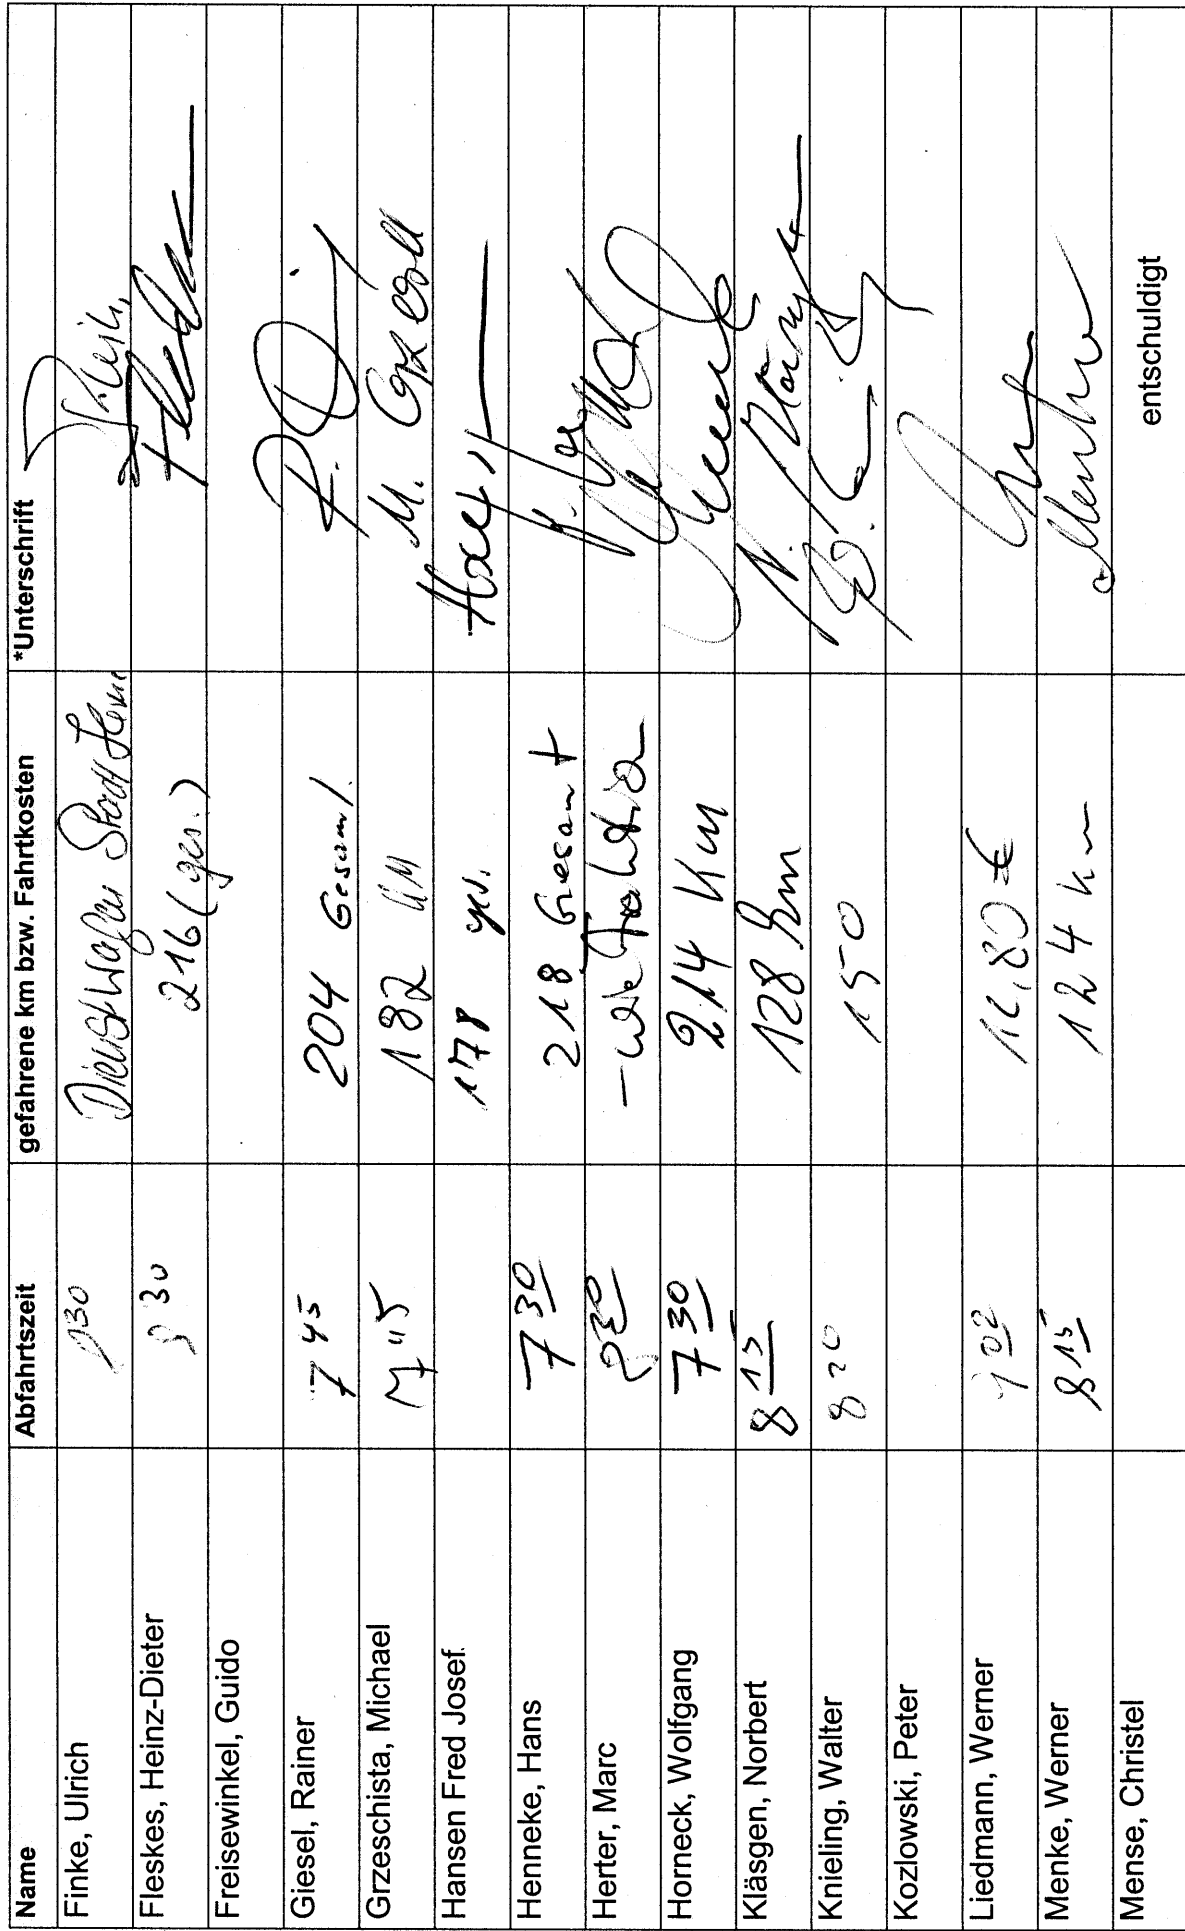 Name Abfahrtszeit gefahrene km bzw. Fahrtkosten *Unterschrift
Finke, Ulrich 30 Dienstwagen Stadt
Fleskes, Heinz-Dieter 8 30 216 (ges.)
Freisewinkel, Guido
Giesel, Rainer 7 45 204 Gesamt.
Grzeschista, Michael 7 45 182 KM M.
Hansen Fred Josef 178 ges.
Henneke, Hans 7 30 218 Gesamt
Herter, Marc 8 30
Horneck, Wolfgang 7 30 214 Km
Kläsgen, Norbert 8 15 128 km N. Kläsgen
Knieling, Walter 8 20 150
Kozlowski, Peter
Liedmann, Werner 9 02
Menke, Werner 8 15 124 km Menke
Mense, Christel entschuldigt